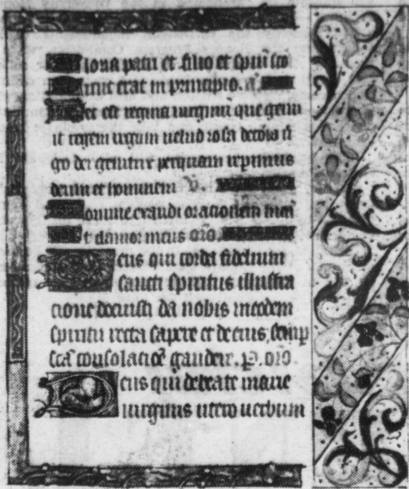 Gloria patri et filio et spiritui sco
Sicut erat in principio. a.
Hec est regina uirginum que genu
it regem uegum uelud rosa decora ui
go dei genitrix per quam repimus
deum et hominem V.
Domine exaudi orationem mea
Et clamor meus oro.
Deus qui corda fidelium
sancti spiritus illustra
cione docuisti da nobis in eodem
spiritu recta sapere et de eius, semp
sca consolatioe gaudere. P. oro.
Deus qui de beate marie
uirginis utero uerbum